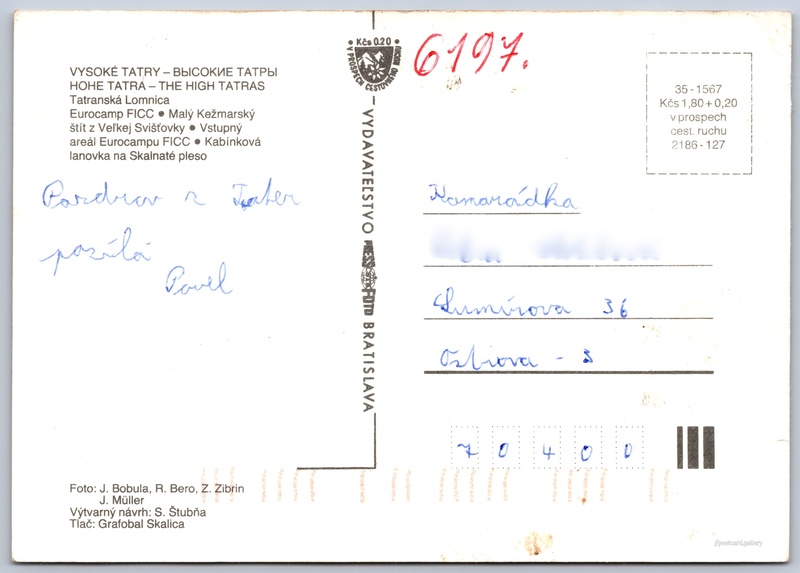 VYSOKÉ TATRY – ВЫСОКИЕ ТАТРЫ
HOHE TATRA – THE HIGH TATRAS
Tatranská Lomnica
Eurocamp FICC ● Malý Kežmarský
štít z Veľkej Svišťovky ● Vstupný
areál Eurocampu FICC ● Kabínková
lanovka na Skalnaté pleso
Pozdrav z Tater
posílá
Pavel
Foto: J. Bobula, R. Bero, Z. Zibrin
J. Müller
Výtvarný návrh: S. Štubňa
Tlač: Grafobal Skalica
• Kčs 0.20 •
V PROSPECH CESTOVNÉHO RUCHU
VYDAVATEĽSTVO PRESSFOTO BRATISLAVA
6197.
35 - 1567
Kčs 1,80 + 0,20
v prospech
cest. ruchu
2186 - 127
Kamarádka
Lumírova 36
Ostrava - 3
70400
postcard.gallery